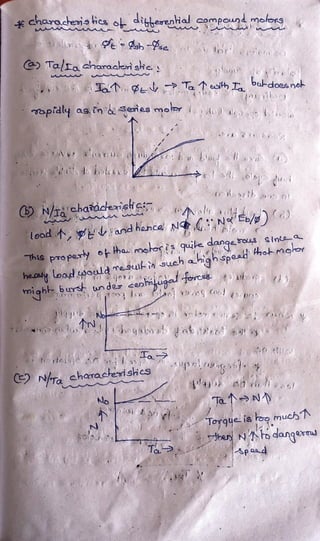 * characteristics of differential compound motors
Øt = Øsh - Øse
(a) Ta/Ia characteristic :
Ia↑. Øt↓ → Ta ↑ with Ia but does not
rapidly as in a series motor
(b) N/Ia characteristic:-
load ↑, Øt↓ and hence N↑ (∵ N∝ Eb/Ø)
This property of the motor is quite dangerous since a
heavy load would result in such a high speed that motor
might burst under centrifugal forces
No
↑N
Ia →
(c) N/Ta characteristics
No
↑
N
Ta →
Ta↑ ⇒ N↑
Torque is too much↑
then N↑ to dangerous
speed